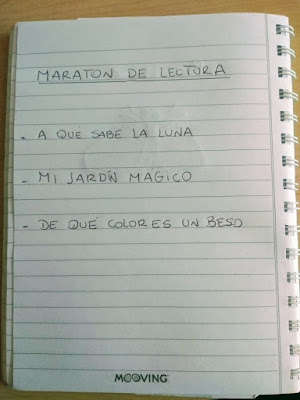 MARATON DE LECTURA
- A QUE SABE LA LUNA
- MI JARDÍN MAGICO
- DE QUÉ COLOR ES UN BESO
MOOVING